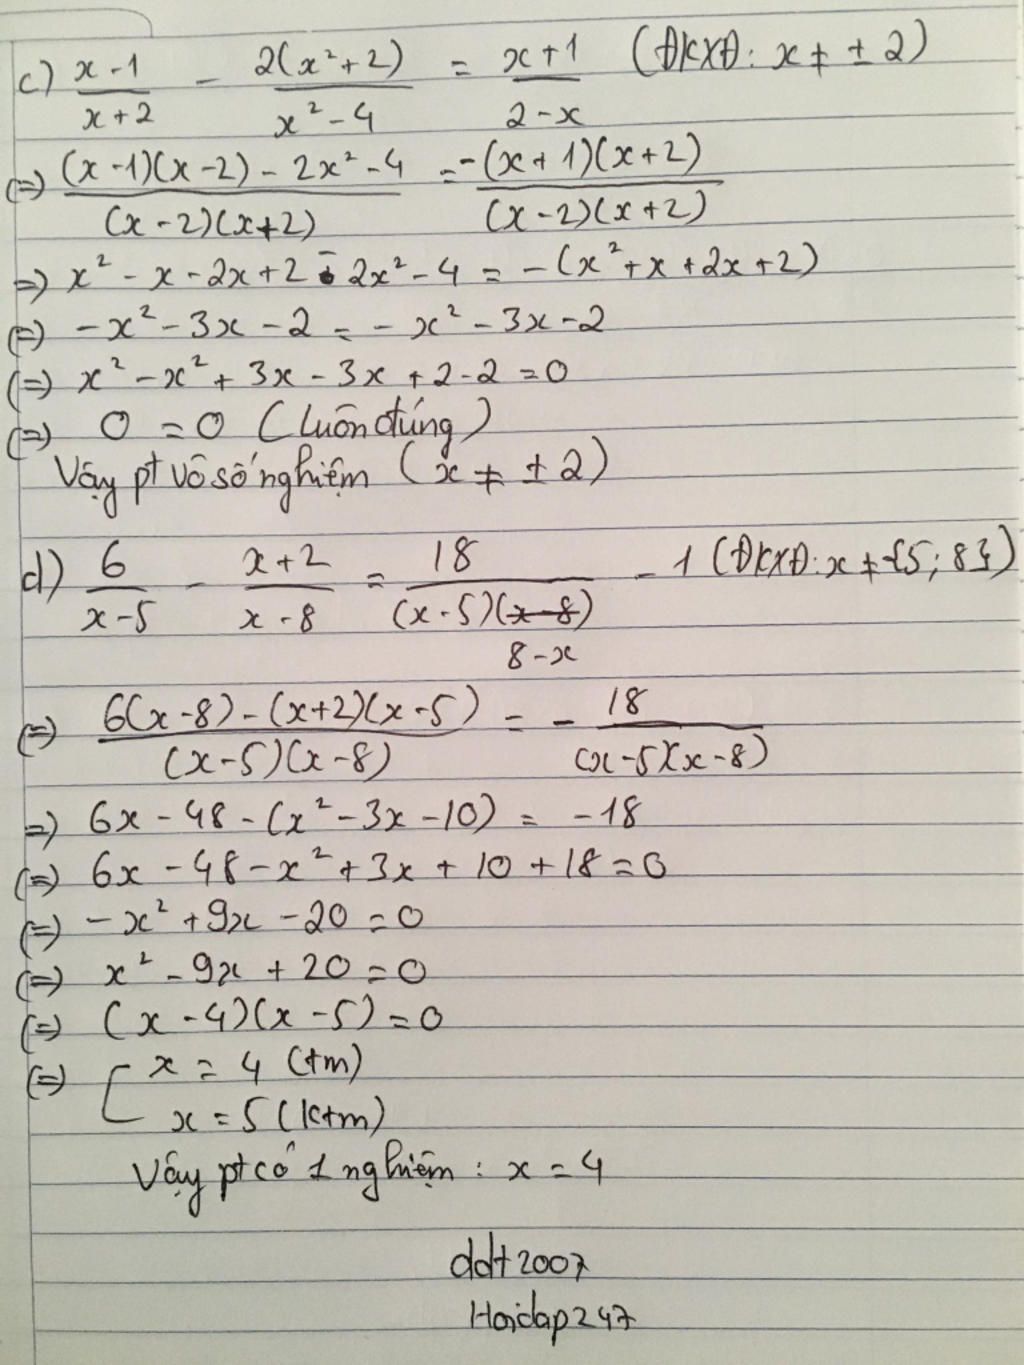 c) (x-1)/(x+2) - 2(x²+2)/(x²-4) = (x+1)/(2-x) (ĐKXĐ: x ≠ ± 2)
(=) ((x-1)(x-2) - 2x² - 4)/((x-2)(x+2)) = -(x+1)(x+2)/((x-2)(x+2))
=) x² - x - 2x + 2 - 2x² - 4 = -(x² + x + 2x + 2)
(=) -x² - 3x - 2 = -x² - 3x - 2
(=) x² - x² + 3x - 3x + 2 - 2 = 0
(=) 0 = 0 (luôn đúng)
Vậy pt vô số nghiệm (x ≠ ± 2)
d) 6/(x-5) - (x+2)/(x-8) = 18/((x-5)(x-8)) - 1 (ĐKXĐ: x ≠ {5; 8})
8-x
(=) (6(x-8) - (x+2)(x-5))/((x-5)(x-8)) = - 18/((x-5)(x-8))
=) 6x - 48 - (x² - 3x - 10) = -18
(=) 6x - 48 - x² + 3x + 10 + 18 = 0
(=) -x² + 9x - 20 = 0
(=) x² - 9x + 20 = 0
(=) (x-4)(x-5) = 0
(=) [ x = 4 (tm)
x = 5 (ktm)
Vậy pt có 1 nghiệm : x = 4
ddt2007
Hoidap247